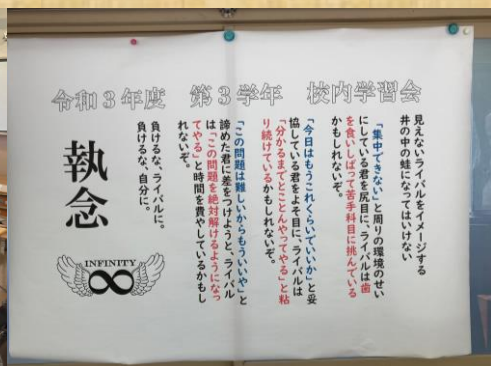 令和3年度　第3学年　校内学習会
見えないライバルをイメージする
井の中の蛙になってはいけない
「集中できない」と周りの環境のせい
にしている君を尻目に、ライバルは歯
を食いしばって苦手科目に挑んでいる
かもしれないぞ。
「今日はもうこれくらいでいいか」と妥
協している君をよそ目に、ライバルは
「分かるまでとことんやってやる」と粘
り続けているかもしれないぞ。
「この問題は難しいからもういいや」と
諦めた君に差をつけようと、ライバル
は「この問題を絶対解けるようになっ
てやる」と時間を費やしているかもし
れないぞ。
負けるな、ライバルに。
負けるな、自分に。
執念
INFINITY